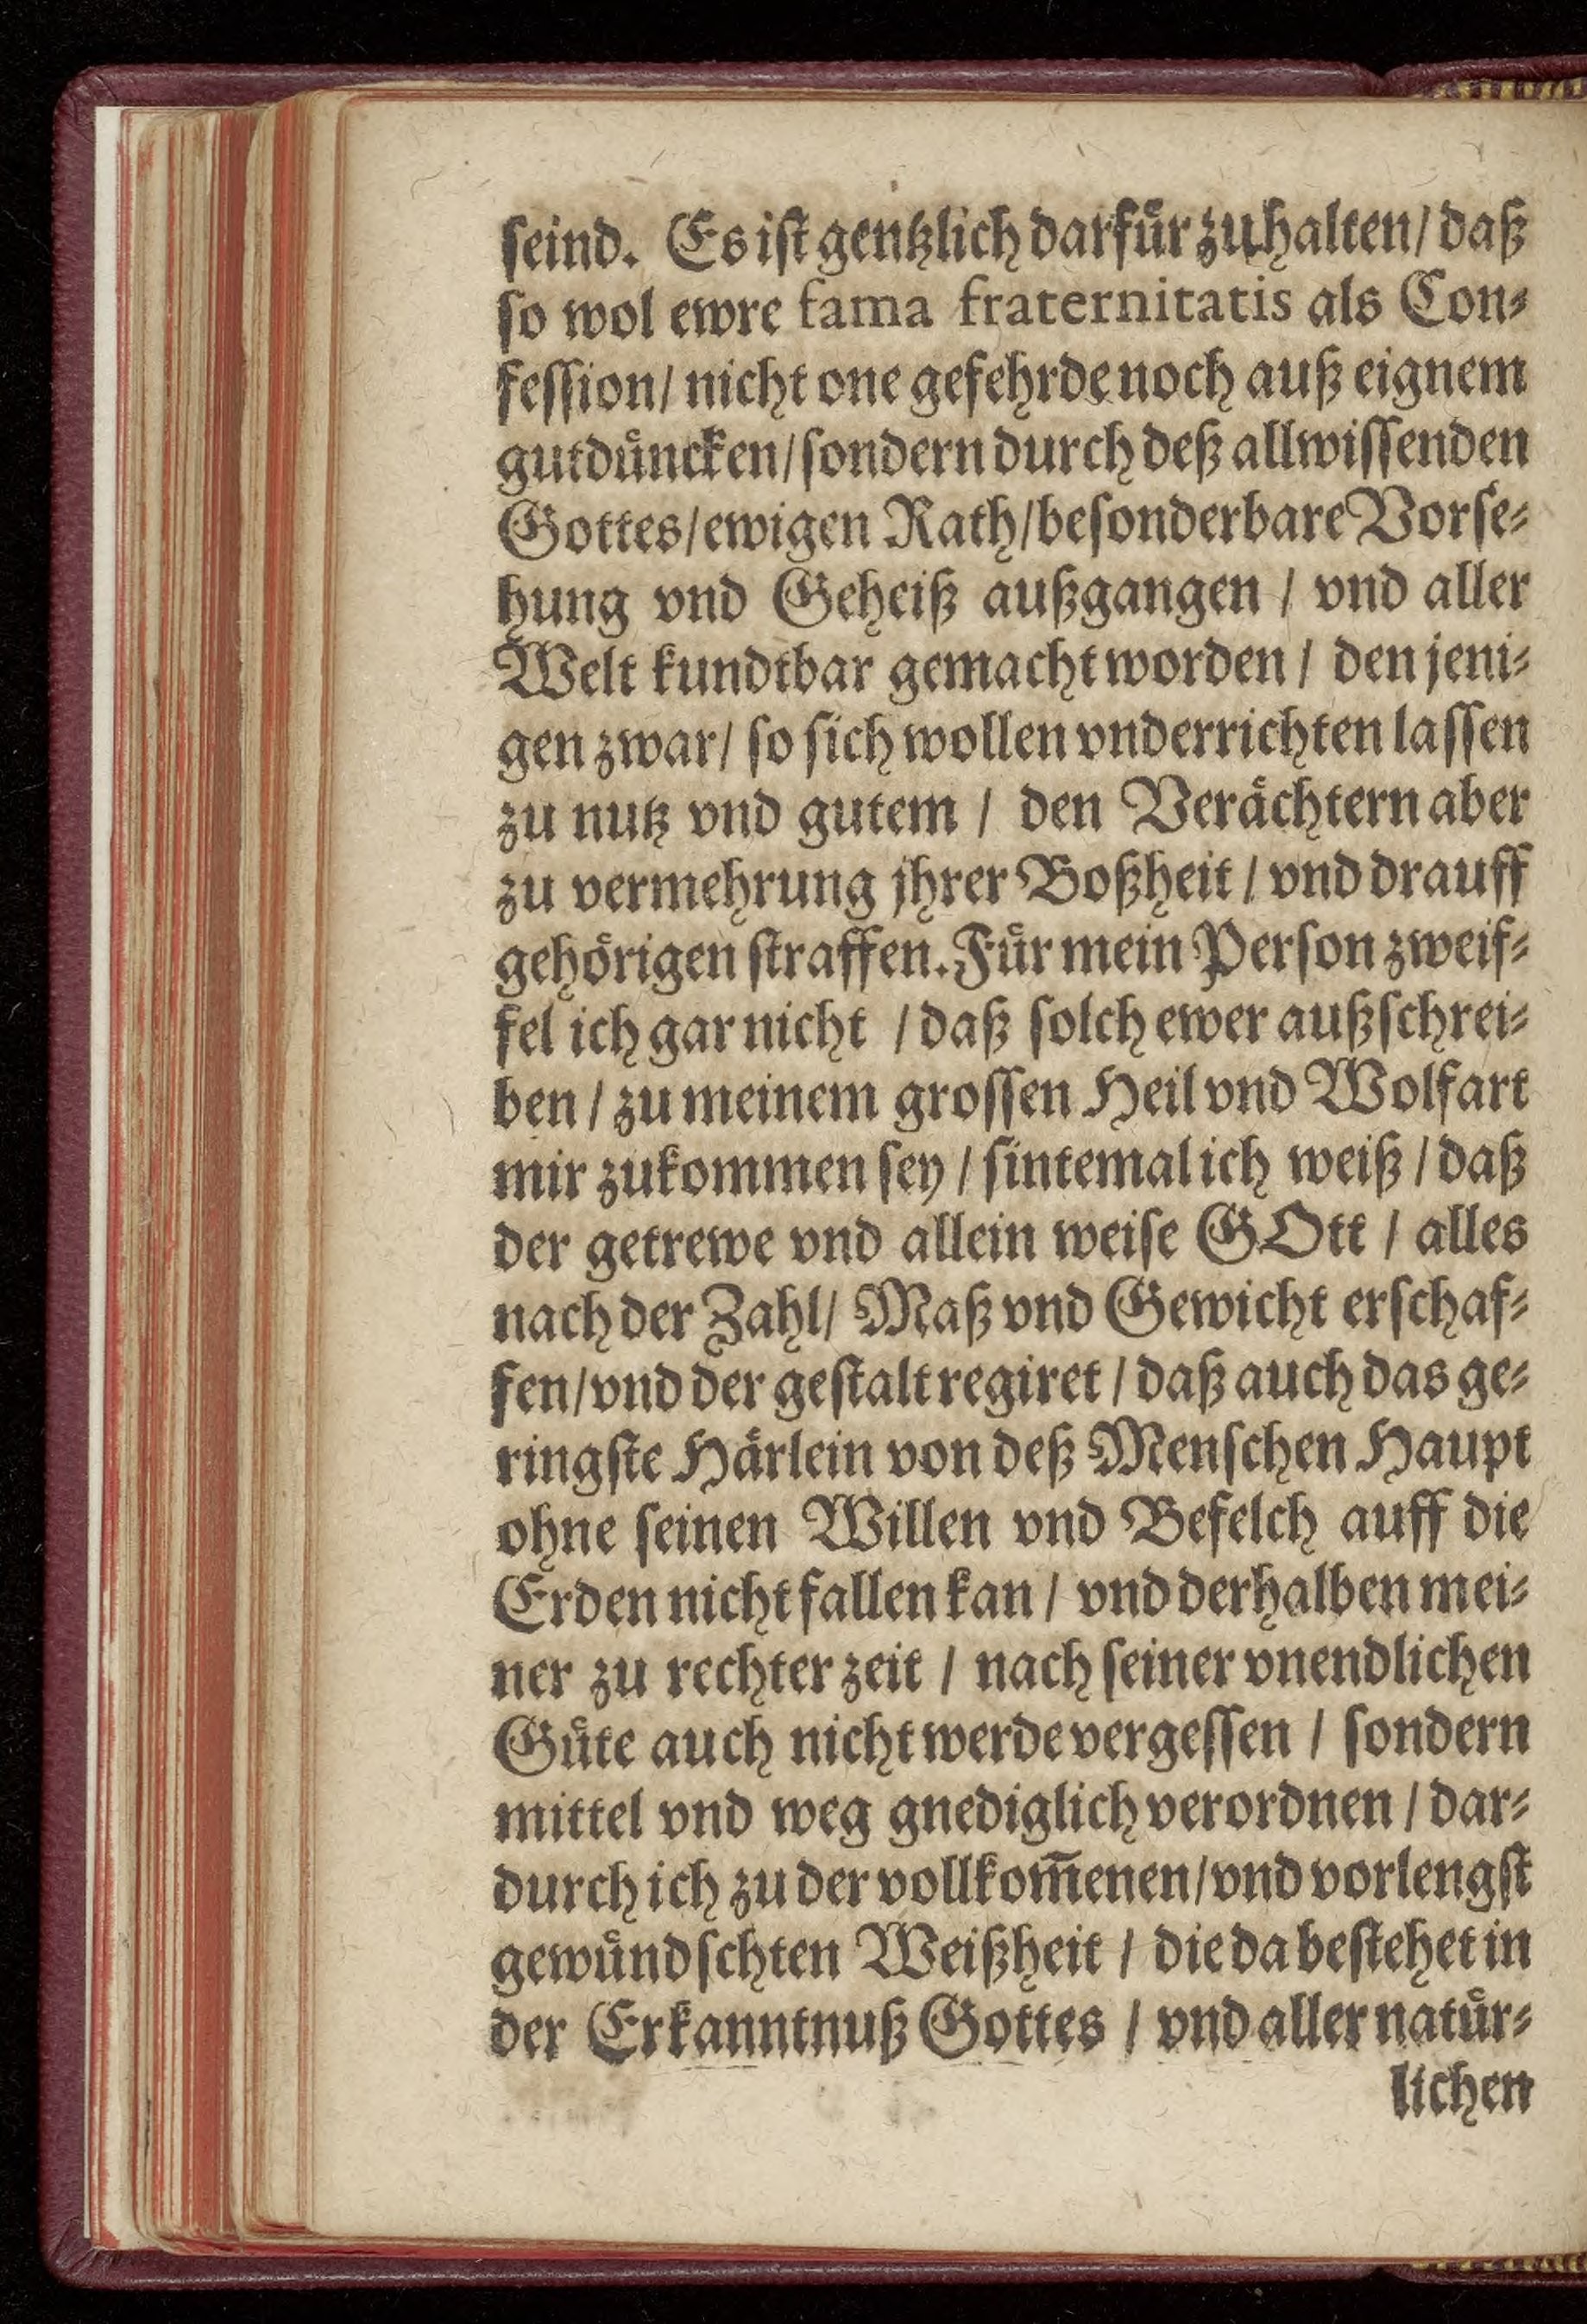 ſeind. Es iſt gentzlich darfuͤr zu halten / daß
ſo wol ewre fama fraternitatis als Con⸗
feſſion / nicht one gefehrde noch auß eignem
gutduͤncken / ſondern durch deß allwiſſenden
Gottes / ewigen Rath / beſonderbare Vorſe⸗
hung vnd Geheiß außgangen / vnd aller
Welt kundtbar gemacht worden / den jeni⸗
gen zwar / ſo ſich wollen vnderrichten laſſen
zu nutz vnd gutem / den Veraͤchtern aber
zu vermehrung jhrer Boßheit / vnd drauff
gehoͤrigen ſtraffen. Fuͤr mein Perſon zweif⸗
fel ich gar nicht / daß ſolch ewer außſchrei⸗
ben / zu meinem groſſen Heil vnd Wolfart
mir zukommen ſey / ſintemal ich weiß / daß
der getrewe vnd allein weiſe GOtt / alles
nach der Zahl / Maß vnd Gewicht erſchaf⸗
fen / vnd der geſtalt regiret / daß auch das ge⸗
ringſte Haͤrlein von deß Menſchen Haupt
ohne ſeinen Willen vnd Befelch auff die
Erden nicht fallen kan / vnd derhalben mei⸗
ner zu rechter zeit / nach ſeiner vnendlichen
Guͤte auch nicht werde vergeſſen / ſondern
mittel vnd weg gnediglich verordnen / dar⸗
durch ich zu der vollkom̃enen / vnd vorlengſt
gewuͤndſchten Weißheit / die da beſtehet in
der Erkanntnuß Gottes / vnd aller natuͤr⸗
lichen